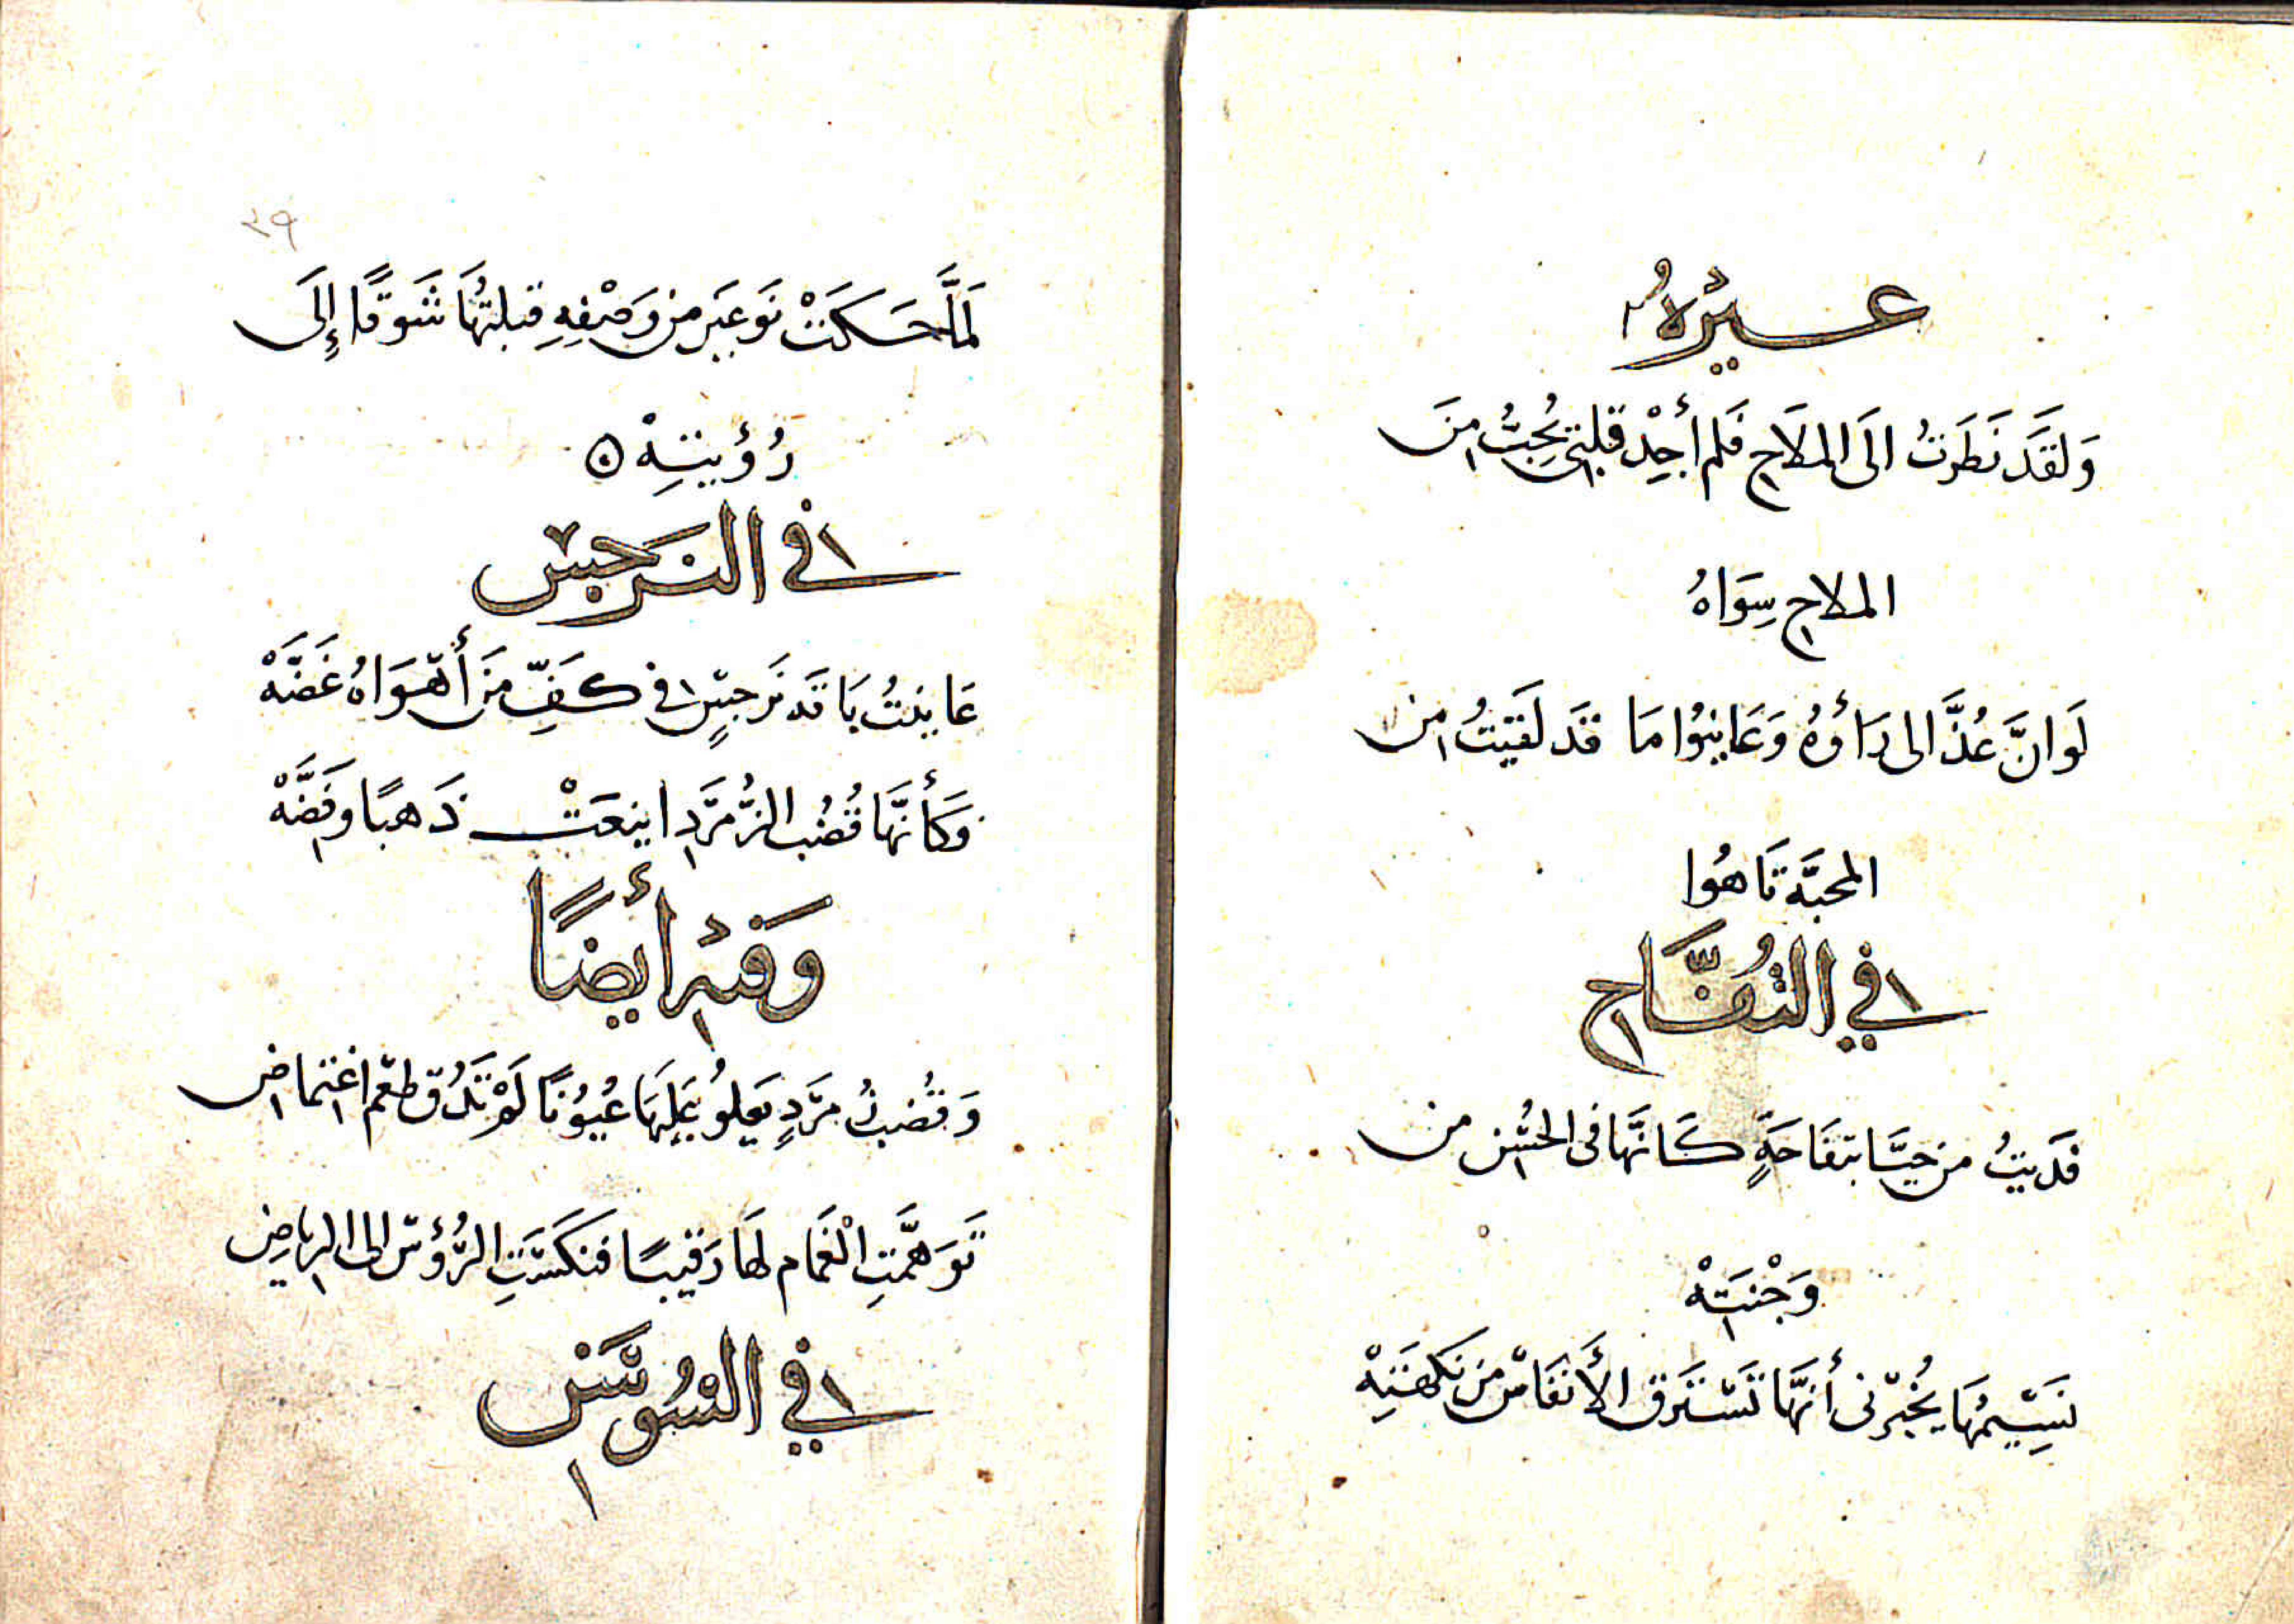 غيره
وَلقَد نَظَرتُ الَى المِلاَحِ فَلم أَجِدْ قلبى يُحِبُّ مِنَ
الملاحِ سِوَاهُ
لَو انَّ عُذَّ الى رَاَؤهُ وَعَاينوُا مَا قَد لَقَيتُ مِن
المحبَّة تَاهُوا
فِي التُفَّاحِ
فَدَيتُ من حَيَّا بتفَاحَةٍ كَانَّهَا فى الحُسْنِ من
وَجْنتِهْ
نَسِيمُهَا يُخبرُنى أنَّهَا تَسْتَرق الأَنفَاسْ مِن نَكهَتِهْ
٣٩
لَمَّا حَكَتْ نَوعَيَر من وَصْفِهِ قبلتهَا شَوقًا إِلَى
رُؤيتِهْ
فِي النَرجِسْ
عَاينتُ بَاقَه نَرجِسٍ فِى كَفِّ مَن أَهْوَاهُ غَضَّهْ
وَكَأنَّهَا قُضُب الزُّمرَّدِ اينعَتْ ذَهبًا وفِضَّهْ
وَفيْهِ أَيضًا
وَقُضبُ مرَّدٍ يَعلوُ عَلَيهَا عُيوُنًا لَمْ تَذُق طعْم اغتِماضِ
تَوَهَّمَتِ الْغمَام لهَا رَقيبًا فنكَسَّتِ الرُّؤسْ الى الرِياضِ
فِي السُوسَنِ